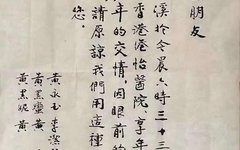 朋友
溪於今晨六時三十三
香港港怡醫院,享年
年的交情,因眼前的
請原諒我們用這種
您。
黃永玉 李潔
黃黑蠻 黃
黃黑妮 黃